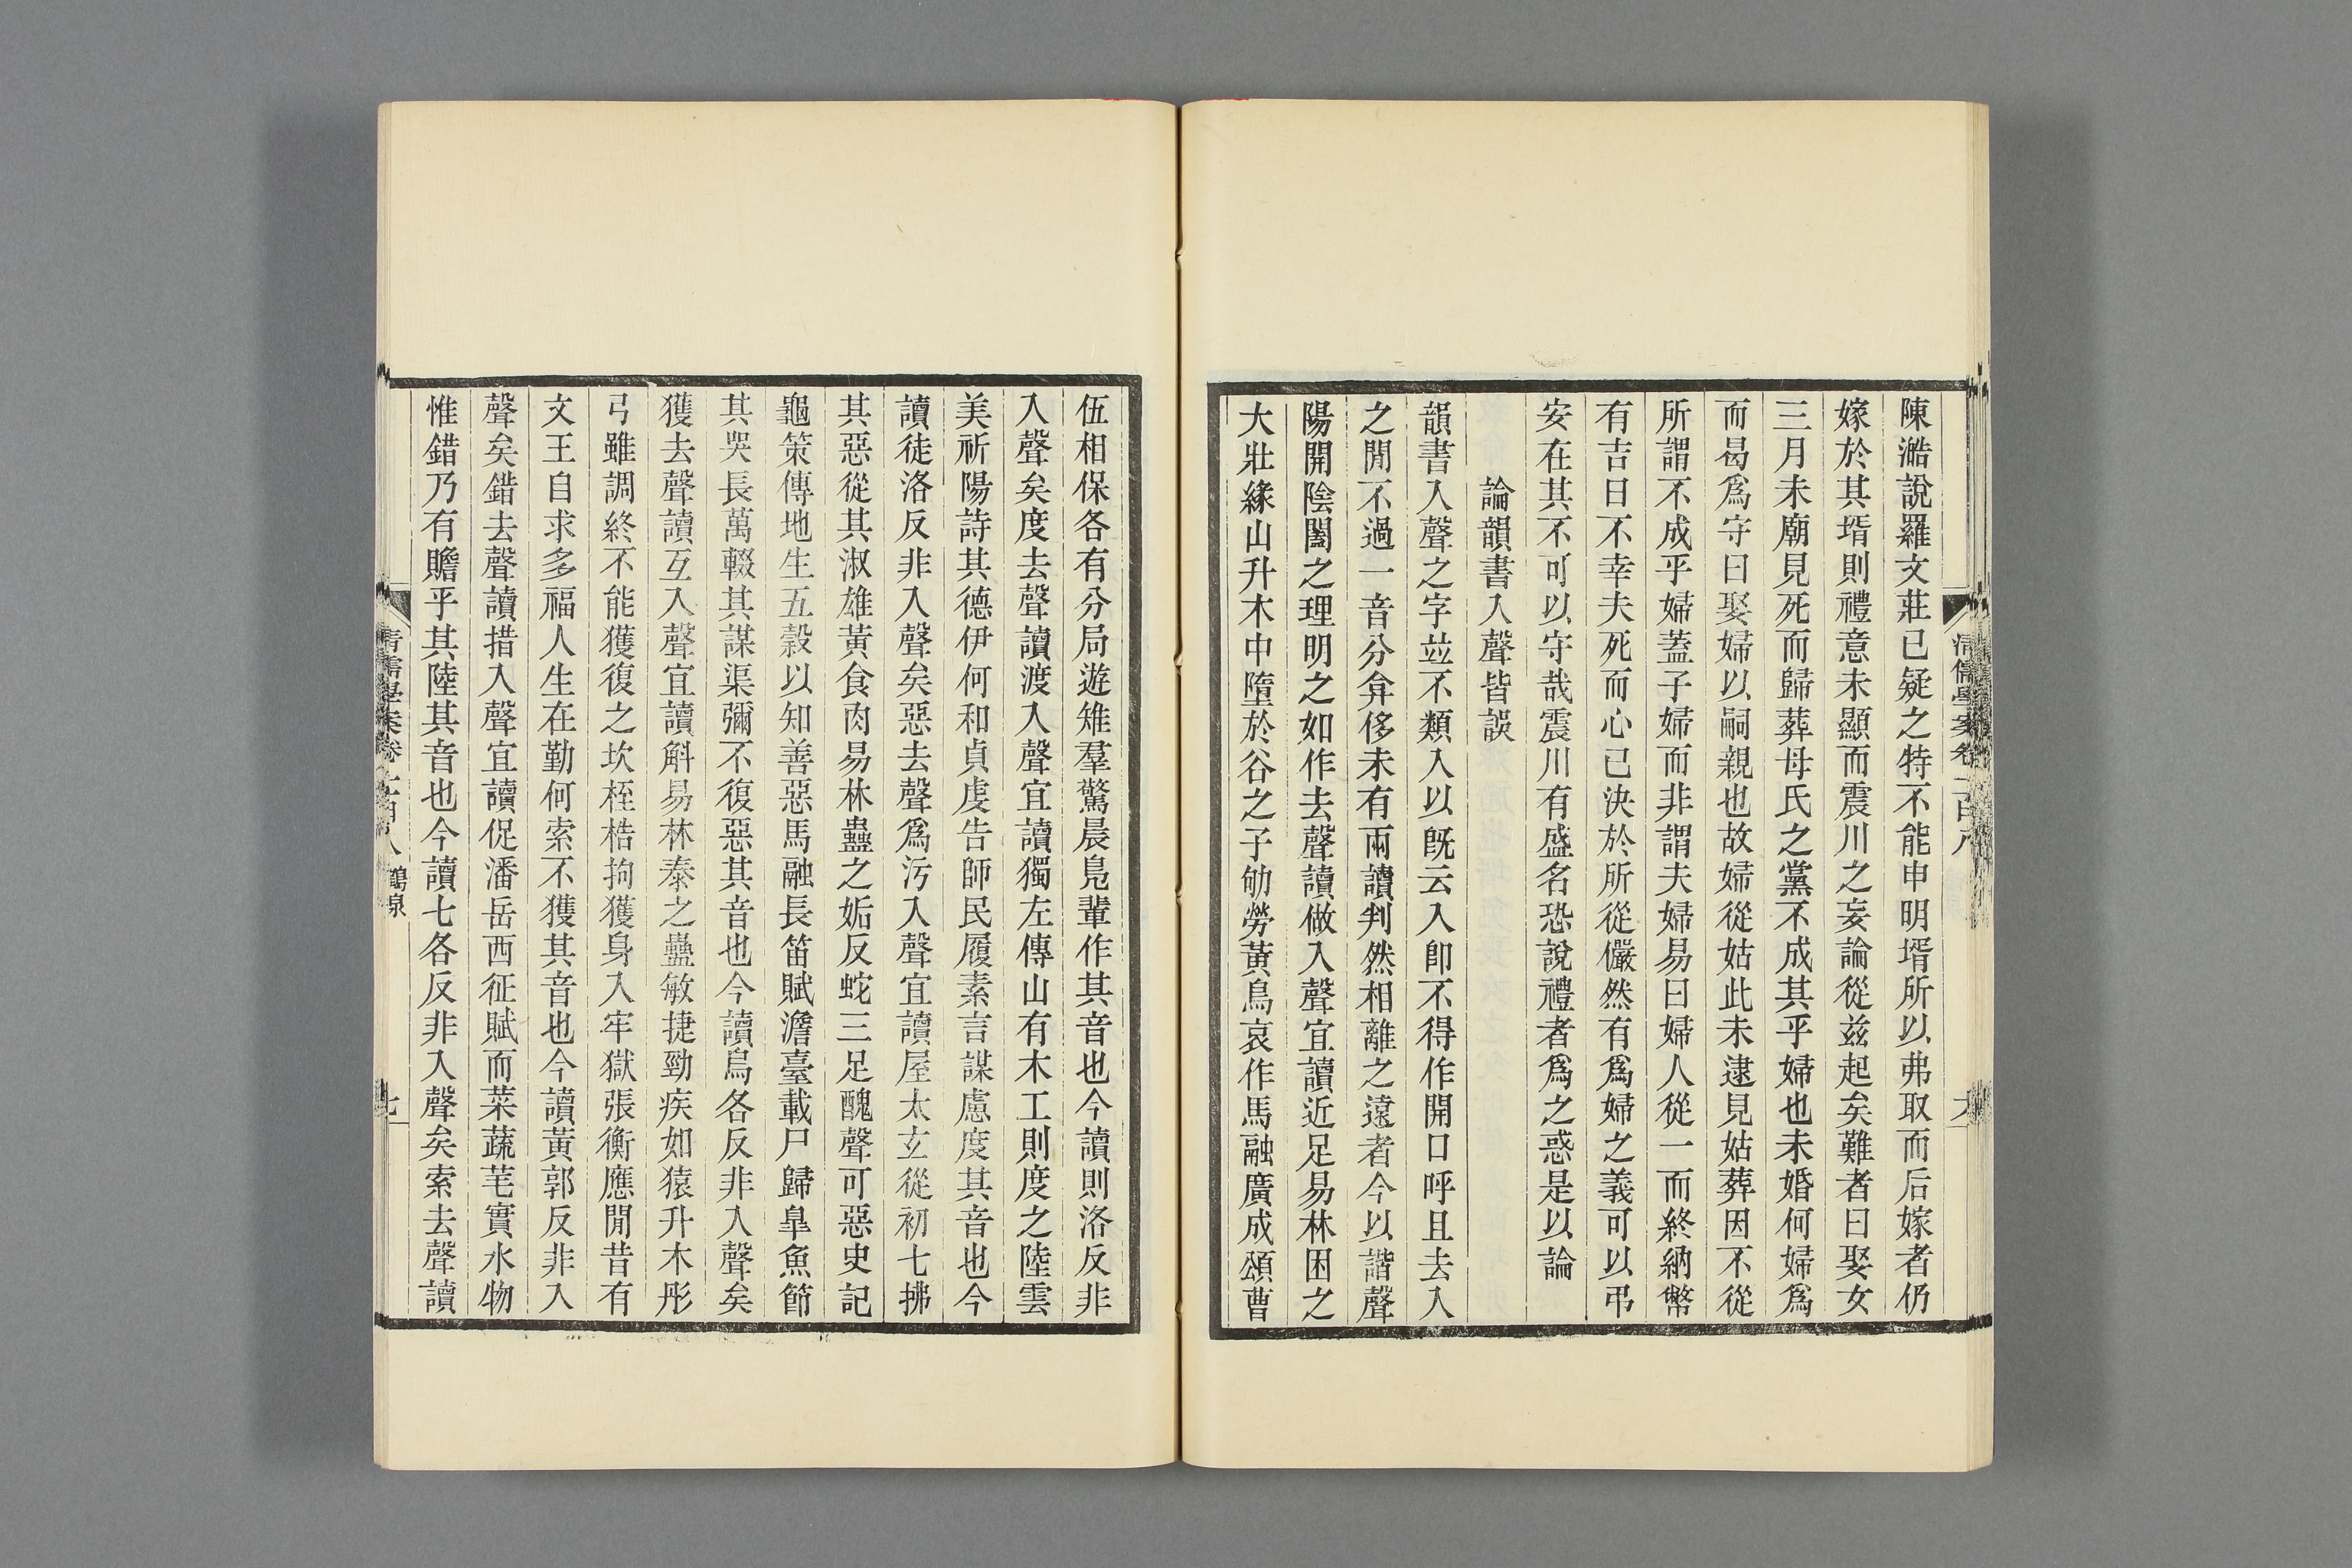 陳澔說羅文莊已疑之特不能申明壻所以弗取而后嫁者仍
嫁於其壻則禮意未顯而震川之妄論從兹起矣難者曰娶女
三月未廟見死而歸葬母氏之黨不成其乎婦也未婚何婦爲
而曷爲守曰娶婦以嗣親也故婦從姑此未逮見姑葬因不從
所謂不成乎婦蓋子婦而非謂夫婦易曰婦人從一而終納幣
有吉日不幸夫死而心已決於所從儼然有爲婦之義可以弔
安在其不可以守哉震川有盛名恐說禮者爲之惑是以論
論韻書入聲皆誤
韻書入聲之字竝不類入以旣云入卽不得作開口呼且去入
之閒不過一音分弇侈未有兩讀判然相離之遠者今以諧聲
陽開陰闔之理明之如作去聲讀做入聲宜讀近足易林困之
大壯緣山升木中墮於谷之子劬勞黃鳥哀作馬融廣成頌曹
伍相保各有分局遊雉羣驚晨鳧輩作其音也今讀則洛反非
入聲矣度去聲讀渡入聲宜讀獨左傳山有木工則度之陸雲
美祈陽詩其德伊何和貞虔告師民履素言謀慮度其音也今
讀徒洛反非入聲矣惡去聲爲污入聲宜讀屋太玄從初七拂
其惡從其淑雄黃食肉易林蠱之姤反蛇三足醜聲可惡史記
龜策傳地生五穀以知善惡馬融長笛賦澹臺載尸歸臯魚節
其哭長萬輟其謀渠彌不復惡其音也今讀烏各反非入聲矣
獲去聲讀互入聲宜讀斛易林泰之蠱敏捷勁疾如猿升木彤
弓雖調終不能獲復之坎桎梏拘獲身入牢獄張衡應閒昔有
文王自求多福人生在勤何索不獲其音也今讀黃郭反非入
聲矣錯去聲讀措入聲宜讀促潘岳西征賦而菜蔬芼實水物
惟錯乃有贍乎其陸其音也今讀七各反非入聲矣索去聲讀
清儒學案卷二百八 鶴泉
七